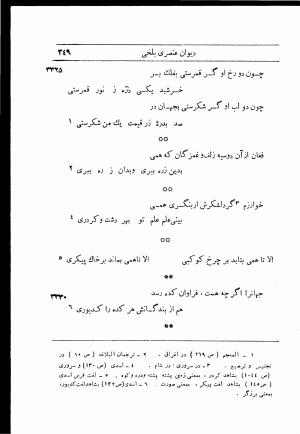 دیوان عنصری بلخی ۳۴۹
۳۳۲۵ چون دو رخ او گر قمرستی بفلك بر
خرشید یکی ذرّه ز نور قمرستی
چون دو لب او گر شکرستی بجهان در
صد بدرهٔ زر قیمت یك من شکرستی ۱
**
فغان از آن دوسیه زلف و غمزگان که همی
بدین زره ببری و بدان ز ره ببری ۲
**
خوارزم ۳ گرد لشکرش ار بنگری همی
بینی علم علم تو بهر دشت و کردری ۴
**
الا تا همی بتابد بر چرخ کوکبی الا تا همی بماند بر خاك پیکری ۵
**
۳۳۳۰ جهانرا اگر چه هست فراوان کده رسد
هم از بندگانش هر کده را کدیوری ۶
**
۱ ـ المعجم (ص ۲۱۹) در اغراق . ۲ ـ ترجمان البلاغه (ص ۱۰) در
تجنیس و ترصیع . ۳ ـ سروری : در شام . ۴ ـ اسدی (ص ۱۳۰) و سروری
(ص ۱۰۴۴) بشاهد کردر ، بمعنی زمین پشته پشته و دره و کوه . ۵ ـ لغت فرس اسدی
(ص ۱۴۵) بشاهد لغت پیکر ، بمعنی صورت . ۶ ـ اسدی (ص ۱۳۲) بشاهد لغت کدیور ،
بمعنی برزگر .